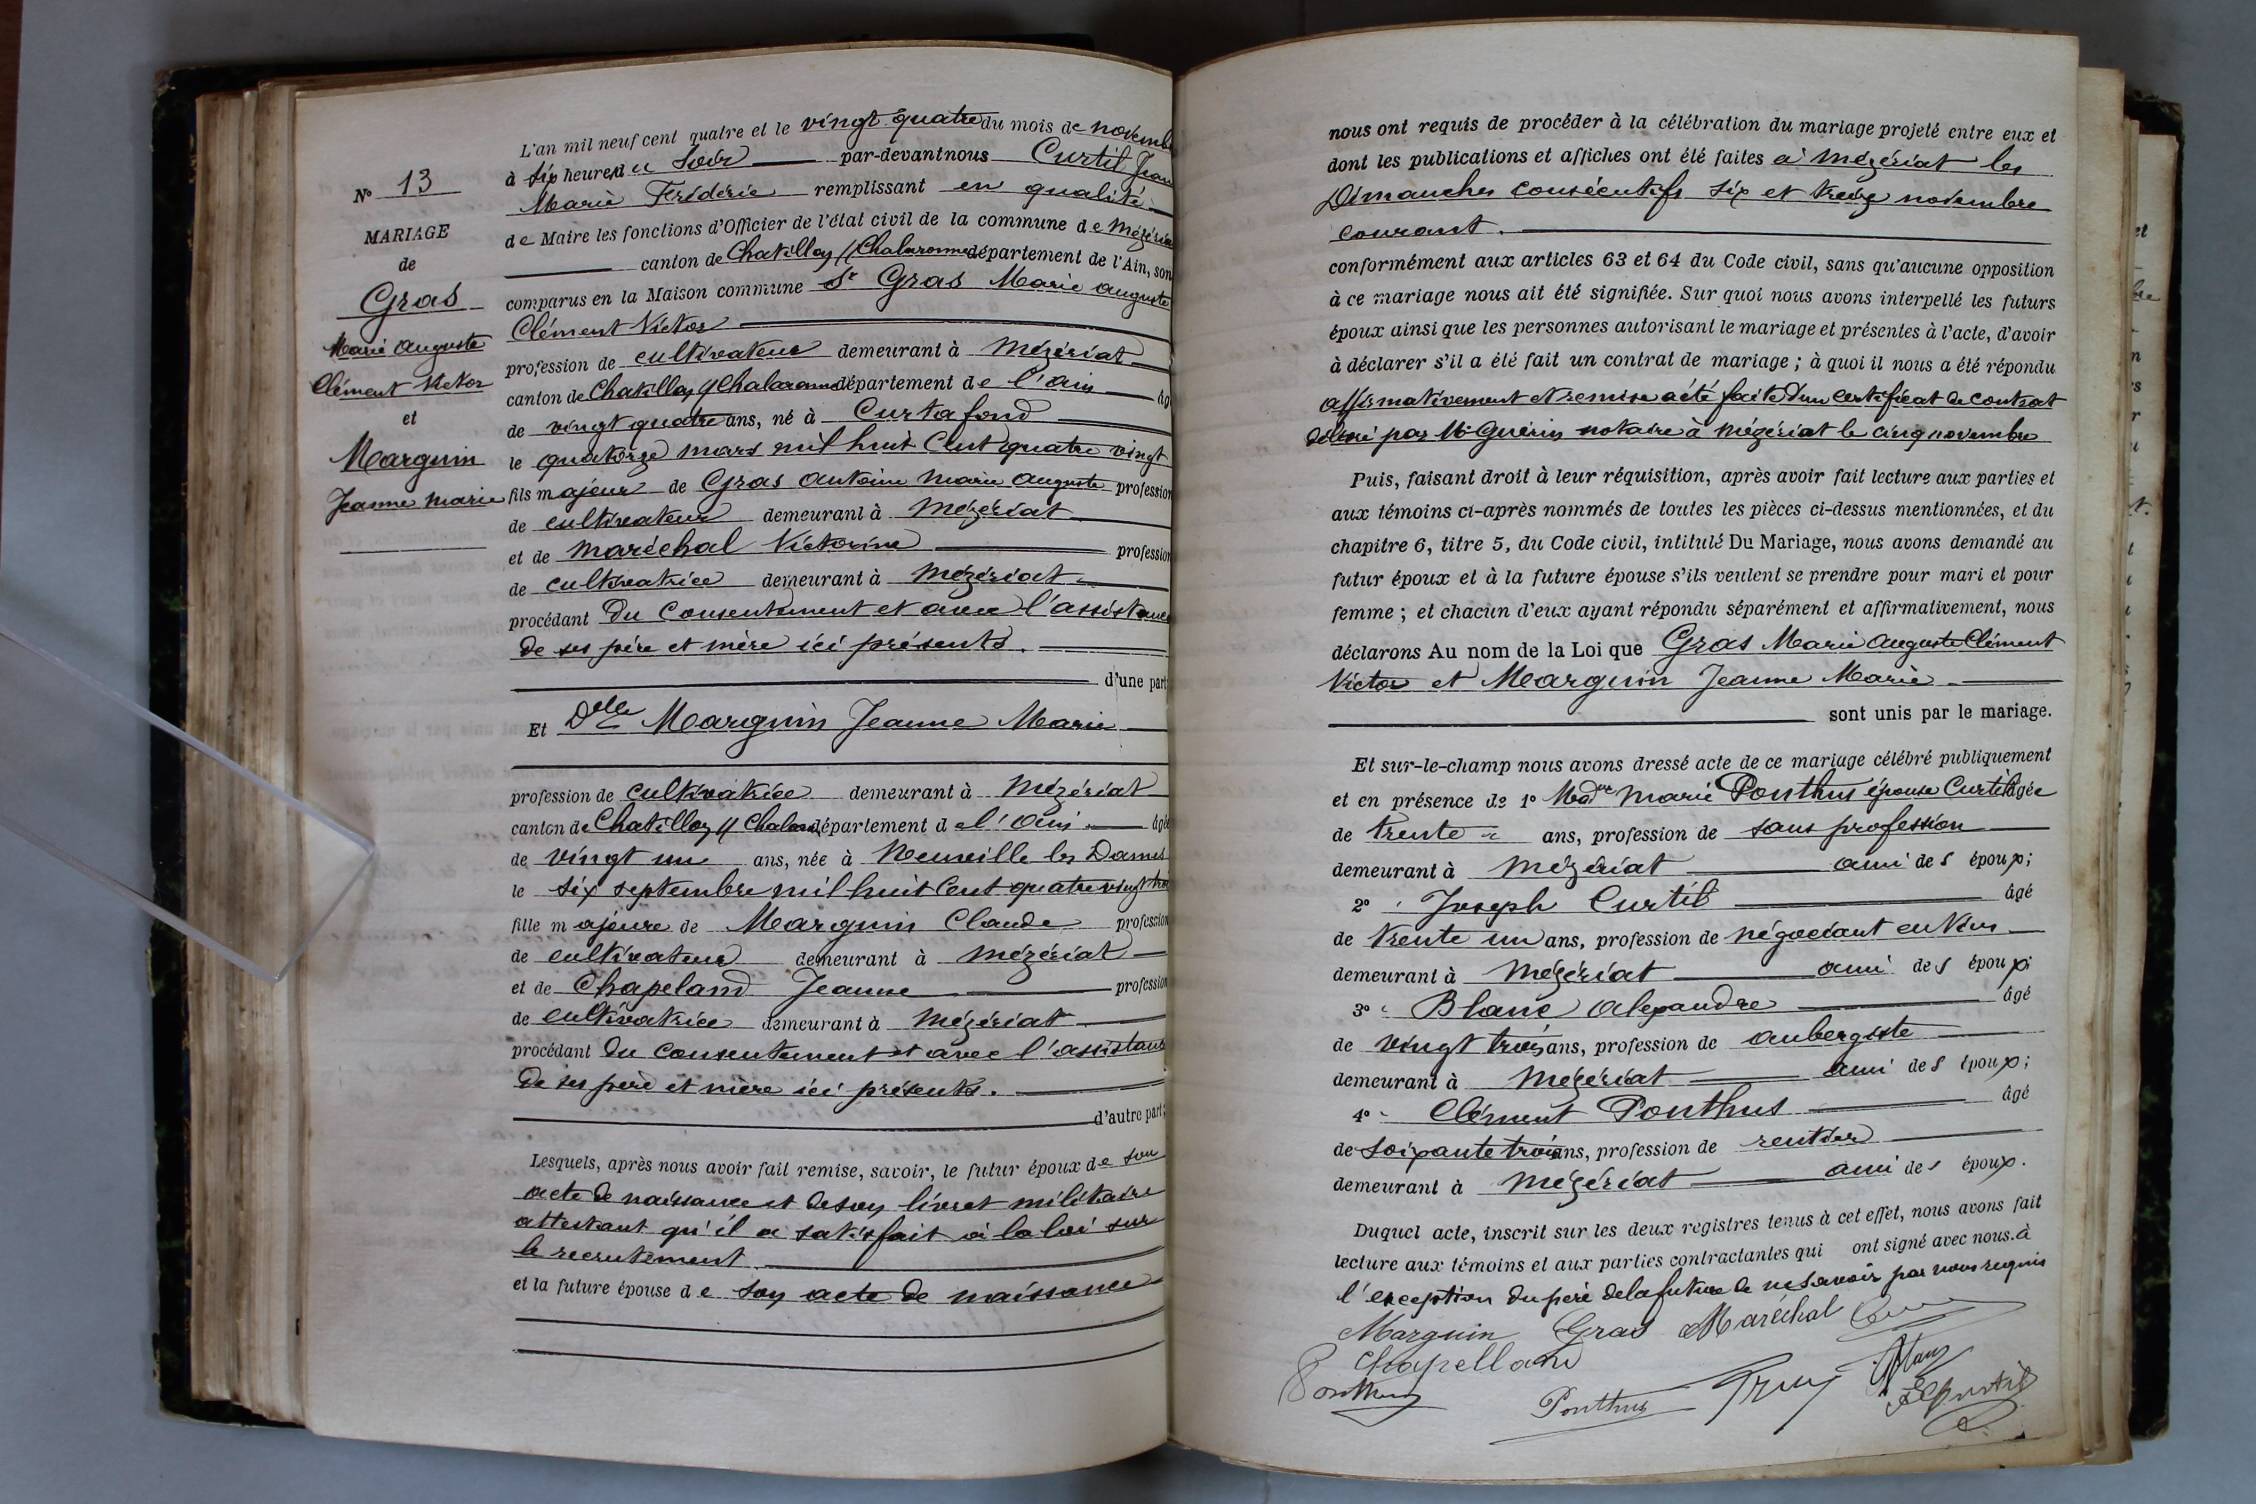 N° 13
MARIAGE
de
Gras
Marie Auguste
Clément Victor
et
Marguin
Jeanne Marie
L'an mil neuf cent quatre et le vingt quatre du mois de novemb
à six heures du Soir par-devant nous Curtil Jean
Marie Frédéric remplissant en qualité
de Maire les fonctions d'Officier de l'état civil de la commune de Mézéria
canton de Chatillon s/ Chalaronne département de l'Ain, son
comparus en la Maison commune Sr Gras Marie Auguste
Clément Victor
profession de cultivateur demeurant à Mézériat
canton de Chatillon s/ Chalaronne département de l'Ain âg
de vingt quatre ans, né à Curtafond
le quatorze mars mil huit cent quatre vingt
fils majeur de Gras Antoine Marie Auguste profession
de cultivateur demeurant à Mézériat
et de Maréchal Victorine profession
de cultivatrice demeurant à Mézériat
procédant du consentement et avec l'assistance
de ses père et mère ici présents.
d'une part;
Et Delle Marguin Jeanne Marie
profession de cultivatrice demeurant à Mézériat
canton de Chatillon s/ Chalar département de l'Ain âgée
de vingt un ans, née à Neuville les Dames
le six septembre mil huit cent quatre vingt troi
fille majeure de Marguin Claude profession
de cultivateur demeurant à Mézériat
et de Chapeland Jeanne profession
de cultivatrice demeurant à Mézériat
procédant du consentement et avec l'assistance
de ses père et mère ici présents.
d'autre part;
Lesquels, après nous avoir fait remise, savoir, le futur époux de son
acte de naissance et de son livret militaire
attestant qu'il a satisfait à la loi sur
le recrutement
et la future épouse de son acte de naissance
nous ont requis de procéder à la célébration du mariage projeté entre eux et
dont les publications et affiches ont été faites à Mézériat les
Dimanches consécutifs six et treize novembre
courant.
conformément aux articles 63 et 64 du Code civil, sans qu'aucune opposition
à ce mariage nous ait été signifiée. Sur quoi nous avons interpellé les futurs
époux ainsi que les personnes autorisant le mariage et présentes à l'acte, d'avoir
à déclarer s'il a été fait un contrat de mariage ; à quoi il nous a été répondu
affirmativement et remise a été faite d'un certificat de contrat
délivré par Me Guérin notaire à Mézériat le cinq novembre
Puis, faisant droit à leur réquisition, après avoir fait lecture aux parties et
aux témoins ci-après nommés de toutes les pièces ci-dessus mentionnées, et du
chapitre 6, titre 5, du Code civil, intitulé Du Mariage, nous avons demandé au
futur époux et à la future épouse s'ils veulent se prendre pour mari et pour
femme ; et chacun d'eux ayant répondu séparément et affirmativement, nous
déclarons Au nom de la Loi que Gras Marie Auguste Clément
Victor et Marguin Jeanne Marie
sont unis par le mariage.
Et sur-le-champ nous avons dressé acte de ce mariage célébré publiquement
et en présence de 1° Madme Marie Ponthus épouse Curtil âgée
de trente ans, profession de sans profession
demeurant à Mézériat ami des époux;
2° Joseph Curtil âgé
de trente un ans, profession de négociant en vins
demeurant à Mézériat ami des époux
3° Blanc Alexandre âgé
de vingt trois ans, profession de aubergiste
demeurant à Mézériat ami des époux;
4° Clément Ponthus âgé
de soixante trois ans, profession de rentier
demeurant à Mézériat ami des époux.
Duquel acte, inscrit sur les deux registres tenus à cet effet, nous avons fait
lecture aux témoins et aux parties contractantes qui ont signé avec nous. à
l'exception du père de la future de ne savoir par nous requis
Marguin Gras Maréchal
Chapelland
Ponthus
Ponthus